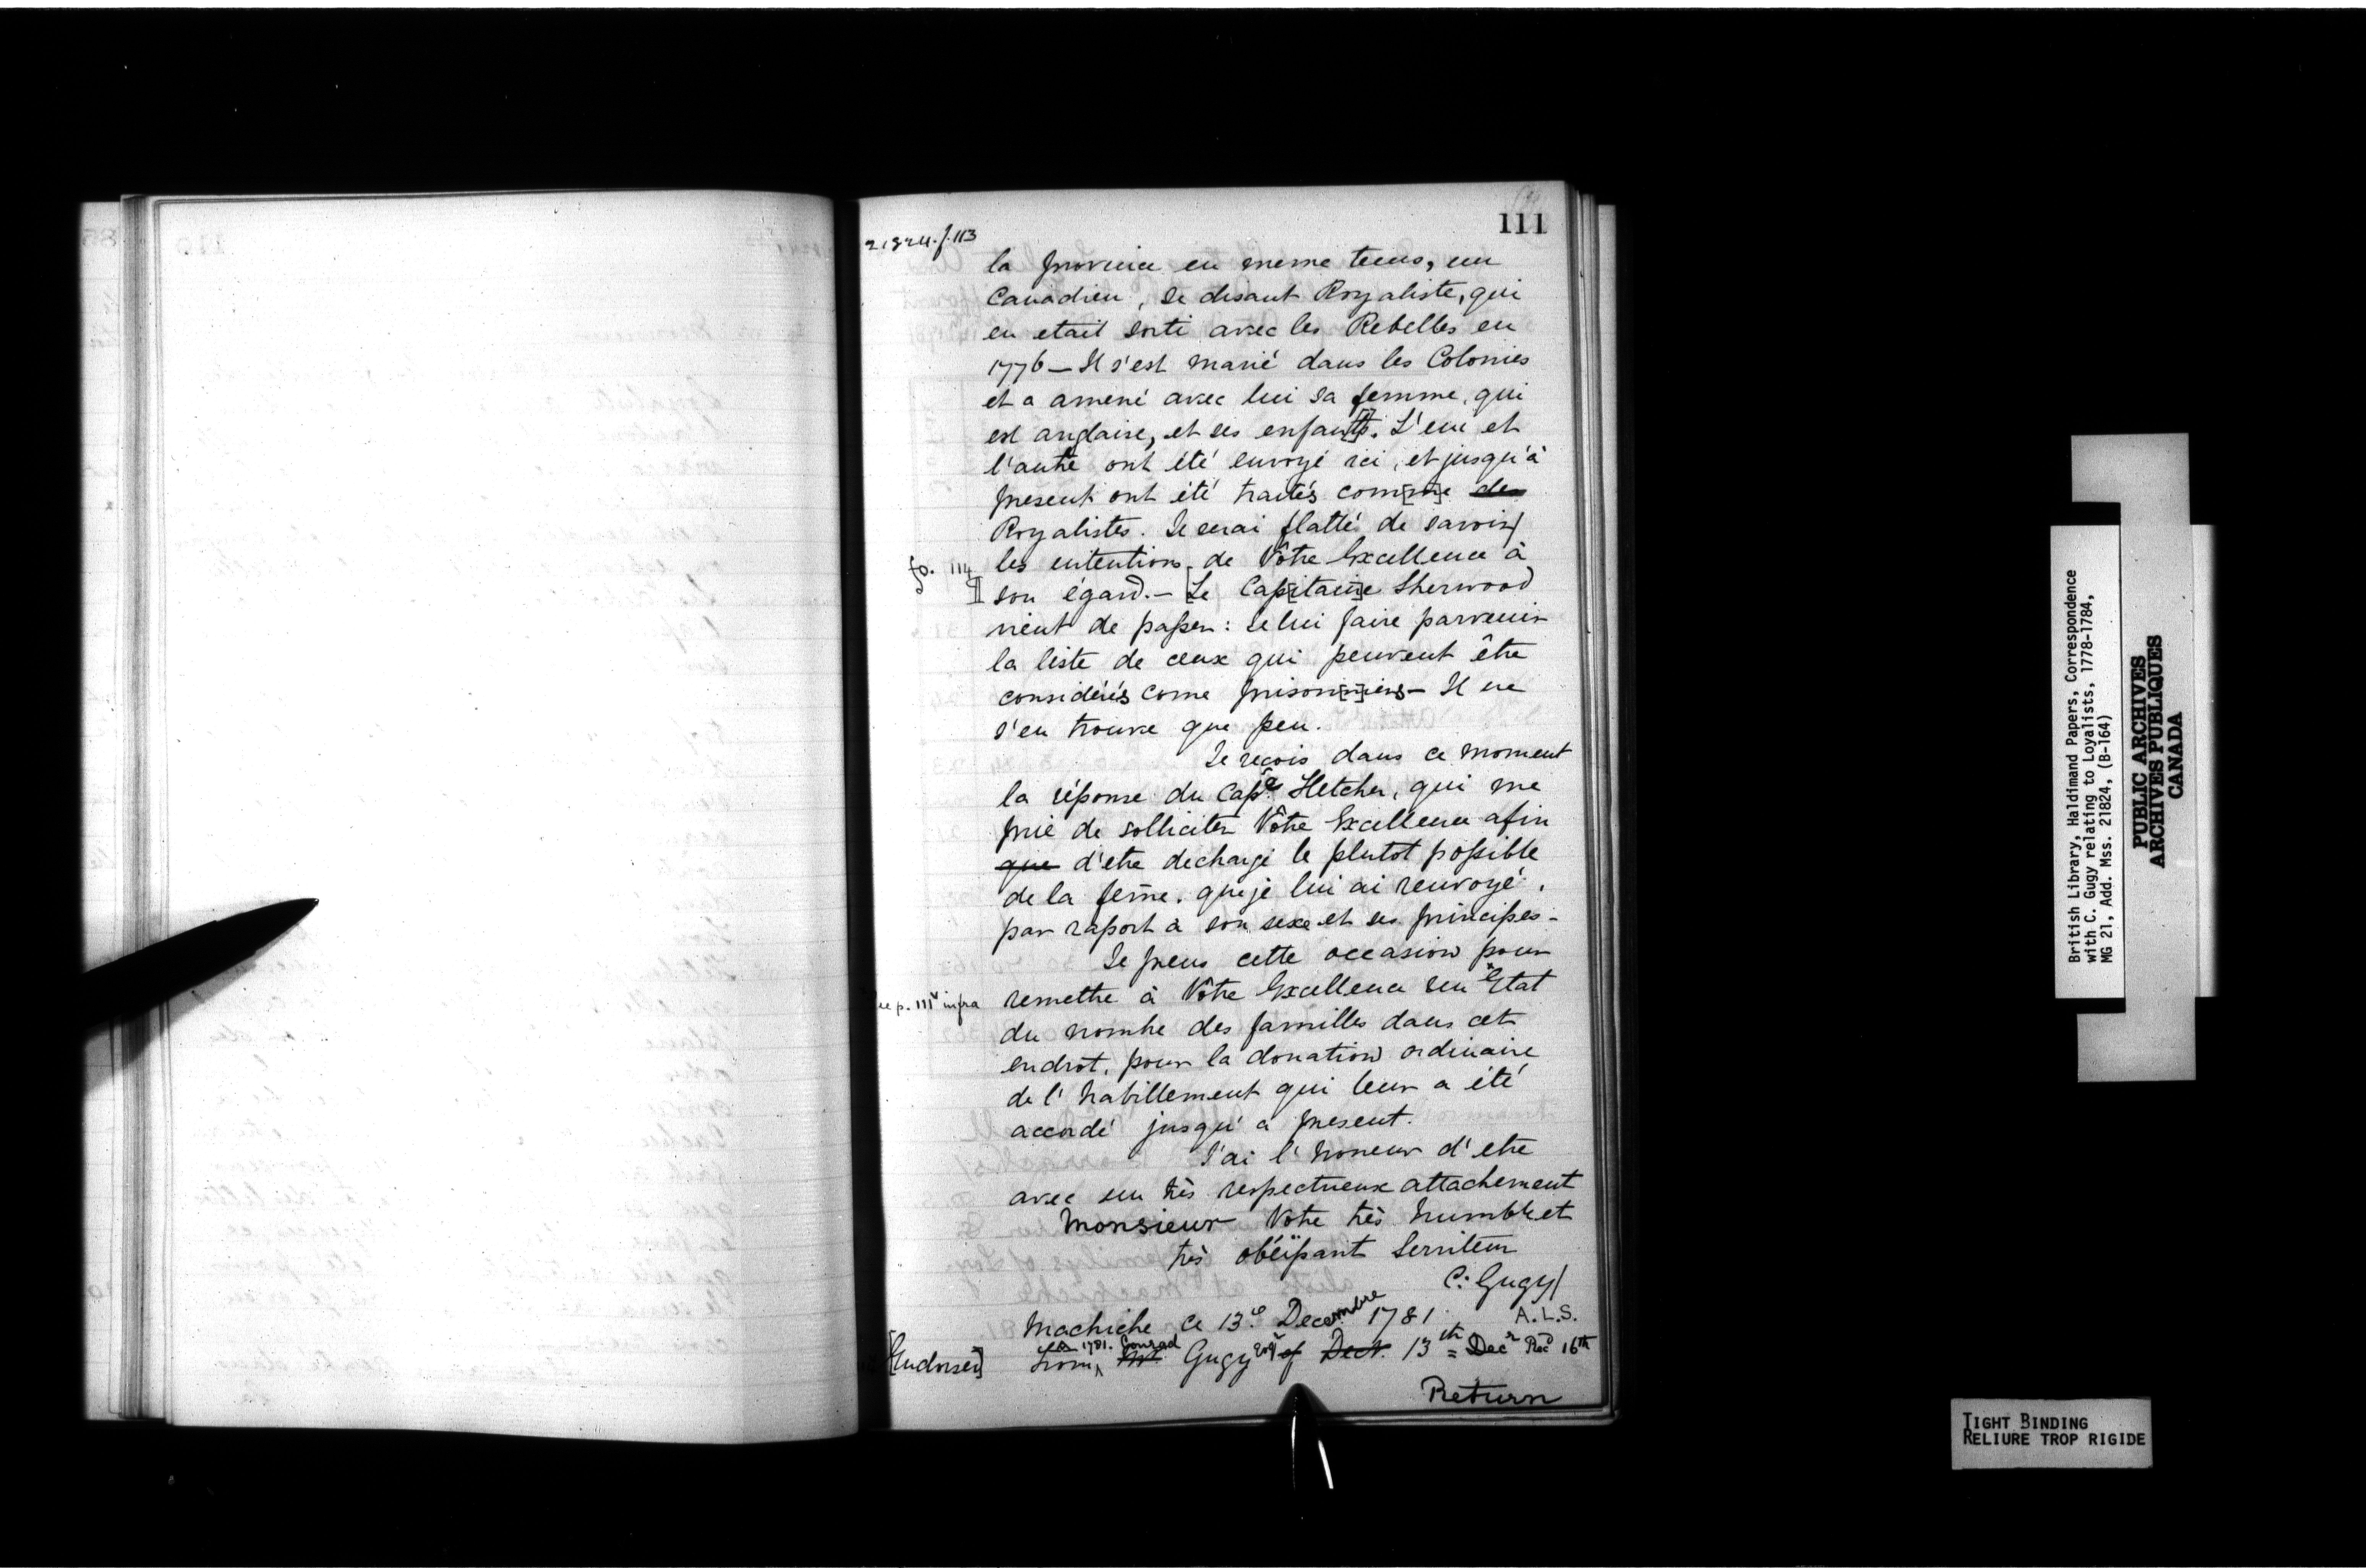 111
21824. f. 113
la province en meme tems, un
Canadien, se disant Royaliste, qui
en etait sorti avec les Rebelles en
1776 — Il s'est marié dans les Colonies
et a amené avec lui sa femme, qui
est anglaise, et ses enfan[t]s. L'un et
l'autre ont été envoyé ici, et jusqu'à
present ont été traités com[m]e des
Royalistes. Je serai flattés de savoir
les intentions de Vôtre Excellence à
fo. 114
son égard. — [Le Cap[itain]e Sherwood
vient de passer: Je lui faire parvenir
la liste de ceux qui peuvent être
considérés come prison[n]iers — Il ne
s'en trouve que peu.
Je reçois dans ce moment
la réponse du Cap.e Fletcher, qui me
prie de solliciter Vôtre Excellence afin
que d'etre dechargé le plutot possible
de la feme, que je lui ai renvoyé,
par raport à son sexe et ses principes —
Je prens cette occasion pour
remettre à Vôtre Excellence un Etat
p. 111v infra
du nombre des familles dans cet
endrot, pour la donation ordinaire
de l'habillement qui leur a été
accordé jusqu'à present.
J'ai l'honeur d'etre
avec un très respectueux attachement
Monsieur Votre très humble et
très obéissant Serviteur
C: Gugy
Machiche ce 13.e Decembre 1781
A.L.S.
[Endorsed] From 1781. Conrad Mr. Gugy Esqr of Decr. 13th Decr Recd 16th
Return
British Library, Haldimand Papers, Correspondence
with C. Gugy relating to Loyalists, 1778-1784,
MG 21, Add. Mss. 21824, (B-164)
PUBLIC ARCHIVES
ARCHIVES PUBLIQUES
CANADA
TIGHT BINDING
RELIURE TROP RIGIDE